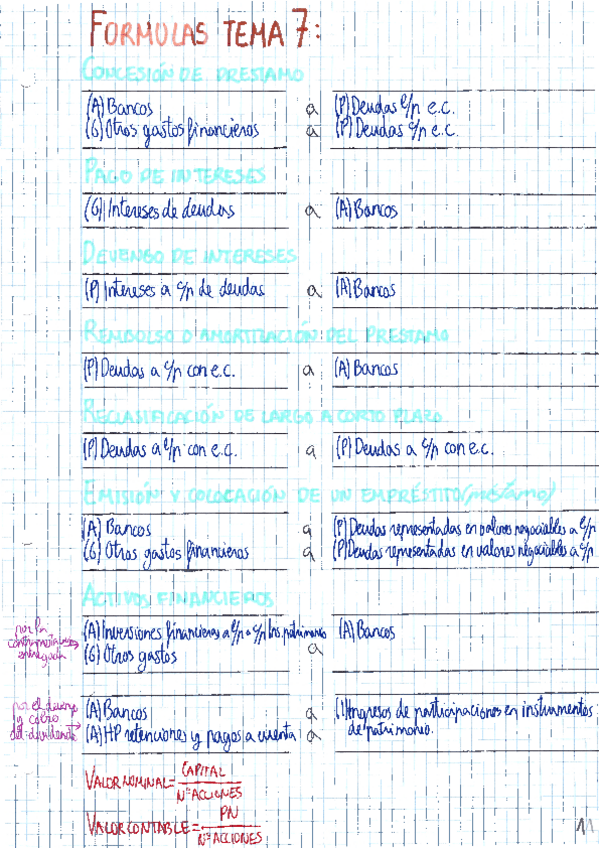 FORMULAS TEMA 7:
CONCESIÓN DE PRESTAMO
(A) Bancos a (P) Deudas l/p e.c.
(G) Otros gastos financieros a (P) Deudas c/p e.c.
PAGO DE INTERESES
(G) Intereses de deudas a (A) Bancos
DEVENGO DE INTERESES
(P) Intereses a c/p de deudas a (A) Bancos
REMBOLSO O AMORTIZACIÓN DEL PRESTAMO
(P) Deudas a c/p con e.c. a (A) Bancos
RECLASIFICACIÓN DE LARGO A CORTO PLAZO
(P) Deudas a l/p con e.c. a (P) Deudas a c/p con e.c.
EMISIÓN Y COLOCACIÓN DE UN EMPRÉSTITO (préstamo)
(A) Bancos a (P) Deudas representadas en valores negociables a l/p
(G) Otros gastos financieros a (P) Deudas representadas en valores negociables a c/p
ACTIVOS FINANCIEROS
por la
entregada
(A) Inversiones financieras a l/p o c/p Ins. patrimonio (A) Bancos
(G) Otros gastos a
por el devengo
y cobro
del dividendo
(A) Bancos a (I) Ingresos de participaciones en instrumentos
(A) HP retenciones y pagos a cuenta a de patrimonio.
VALOR NOMINAL = CAPITAL / Nº ACCIONES
VALOR CONTABLE = PN / Nº ACCIONES
11